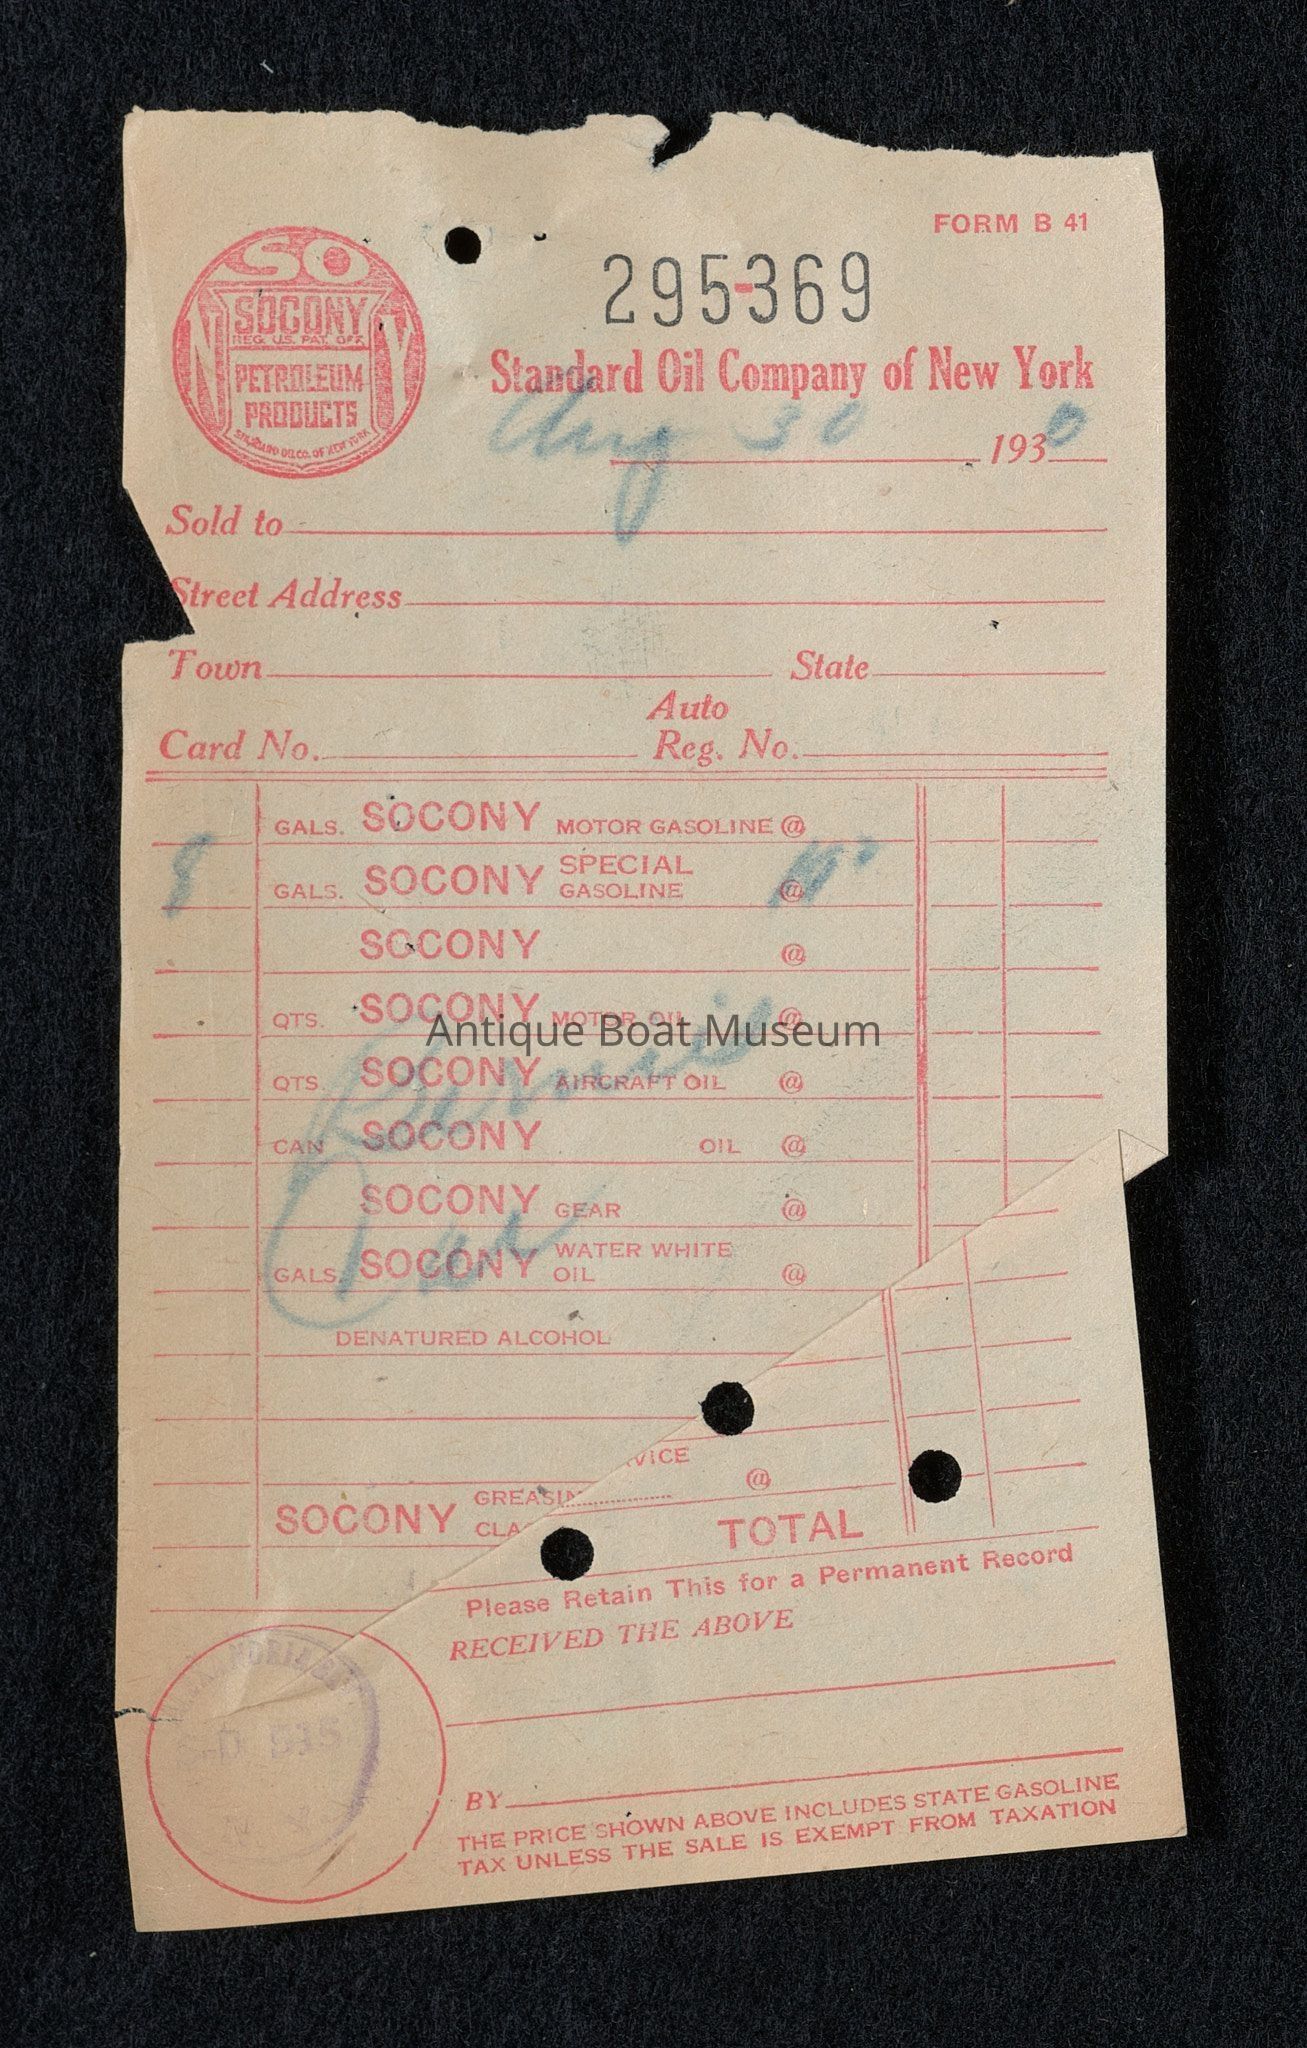 FORM B 41
SO
NY
SOCONY
REG. U.S. PAT. OFF.
PETROLEUM
PRODUCTS
STANDARD OIL CO. OF NEW YORK
295-369
Standard Oil Company of New York
Aug 30 1930
Sold to
Street Address
Town State
Auto
Card No. Reg. No.
GALS. SOCONY MOTOR GASOLINE @
8 GALS. SOCONY SPECIAL GASOLINE @
SOCONY @
QTS. SOCONY MOTOR OIL @
Antique Boat Museum
QTS. SOCONY AIRCRAFT OIL @
CAN SOCONY OIL @
SOCONY GEAR @
GALS. SOCONY WATER WHITE OIL @
DENATURED ALCOHOL
VICE
@
SOCONY GREASIN
CLA
TOTAL
Please Retain This for a Permanent Record
RECEIVED THE ABOVE
515
BY
THE PRICE SHOWN ABOVE INCLUDES STATE GASOLINE
TAX UNLESS THE SALE IS EXEMPT FROM TAXATION